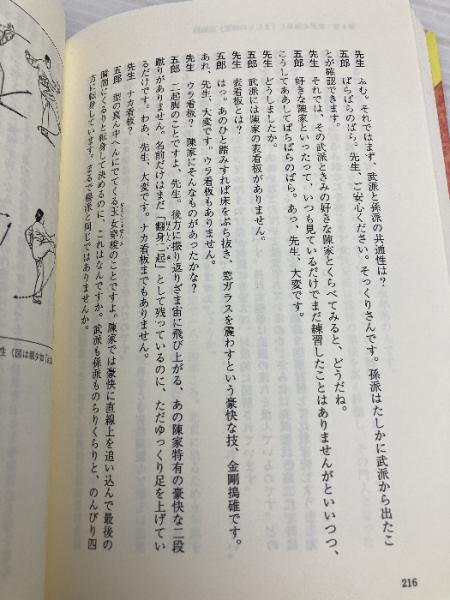 先生　ふむ。それではまず、武派と孫派の共通性は？
五郎　ぱらぱらのぱら。先生、ご安心ください。そっくりさんです。孫派はたしかに武派から出たこ
とが確認できます。
先生　それでは、その武派ときみの好きな陳家とくらべてみると、どうだね。
五郎　好きな陳家といったって、いつも見ているだけでまだ練習したことはありませんがといいつつ、
こうしてああしてぱらぱらのぱら。あっ、先生、大変です。
先生　どうしましたか。
五郎　武派には陳家の表看板がありません。
先生　表看板とは？
五郎　はっ。あのひと踏みすれば床をぶち抜き、窓ガラスを震わすという豪快な技、金剛搗碓です。
あれ、先生、大変です。ウラ看板もありません。
先生　ウラ看板？　陳家にそんなものがあったかな？
五郎　二起脚のことですよ、先生。後方に振り返りざま宙に飛び上がる、あの陳家特有の豪快な二段
蹴りがありません。名前だけはまだ「翻身二起」として残っているのに、ただゆっくり足を上げてい
るだけです。わあ、先生、大変です。ナカ看板までもありません。
先生　ナカ看板？
五郎　型の真ん中へんにでてくる玉女穿梭のことですよ。陳家では豪快に直線上を追い込んで最後の
瞬間にくるりと転身して決めるのに、これはなんですか。武派も孫派ものらりくらりと、のんびり四
方に転身しています。まるで楊派と同じではありませんか。
216